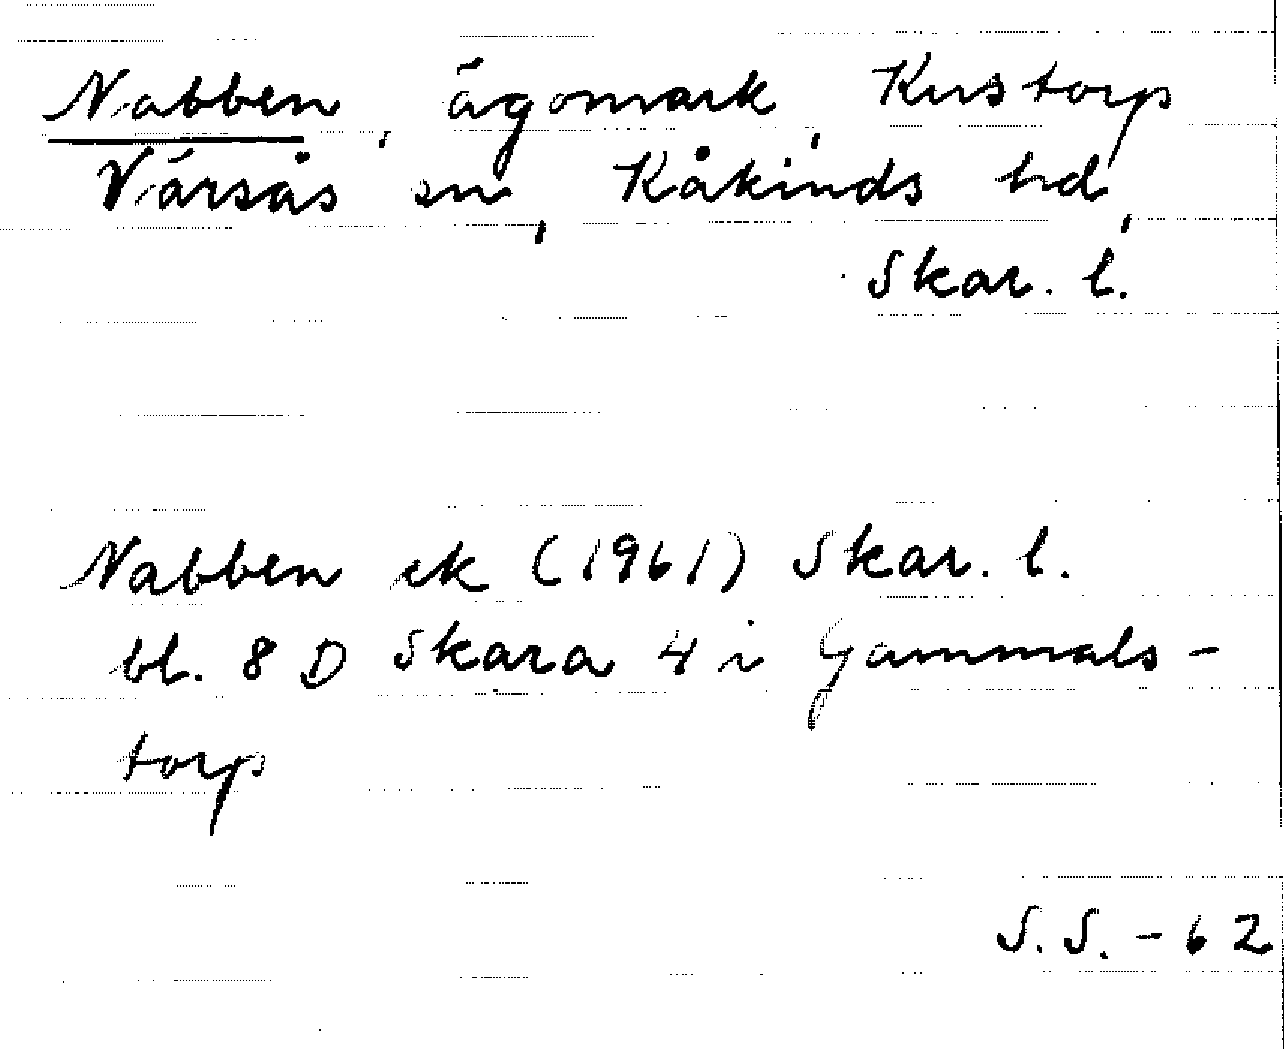 Nabben, ägomark, Kustorp
Värsås sn, Kåkinds hd,
Skar. l.
Nabben ek (1961) Skar. l.
bl. 8 D Skara 4 i Gammals-
torp
S.S. - 62